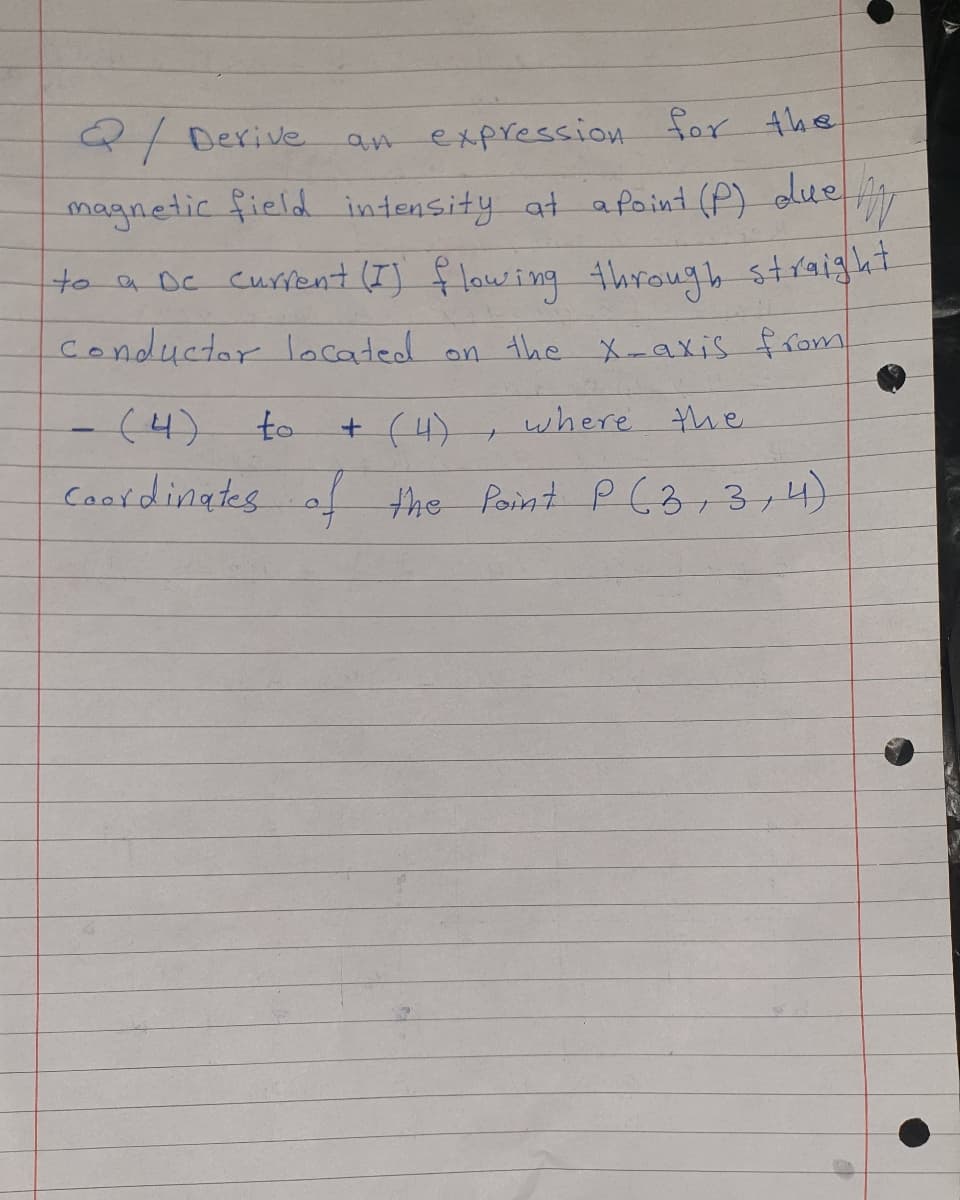 Q / Derive an expression for the
magnetic field intensity at a point (P) due
to a DC current (I) flowing through straight
conductor located on the x-axis from
- (4) to + (4) , where the
coordinates of the Point P (3,3,4)